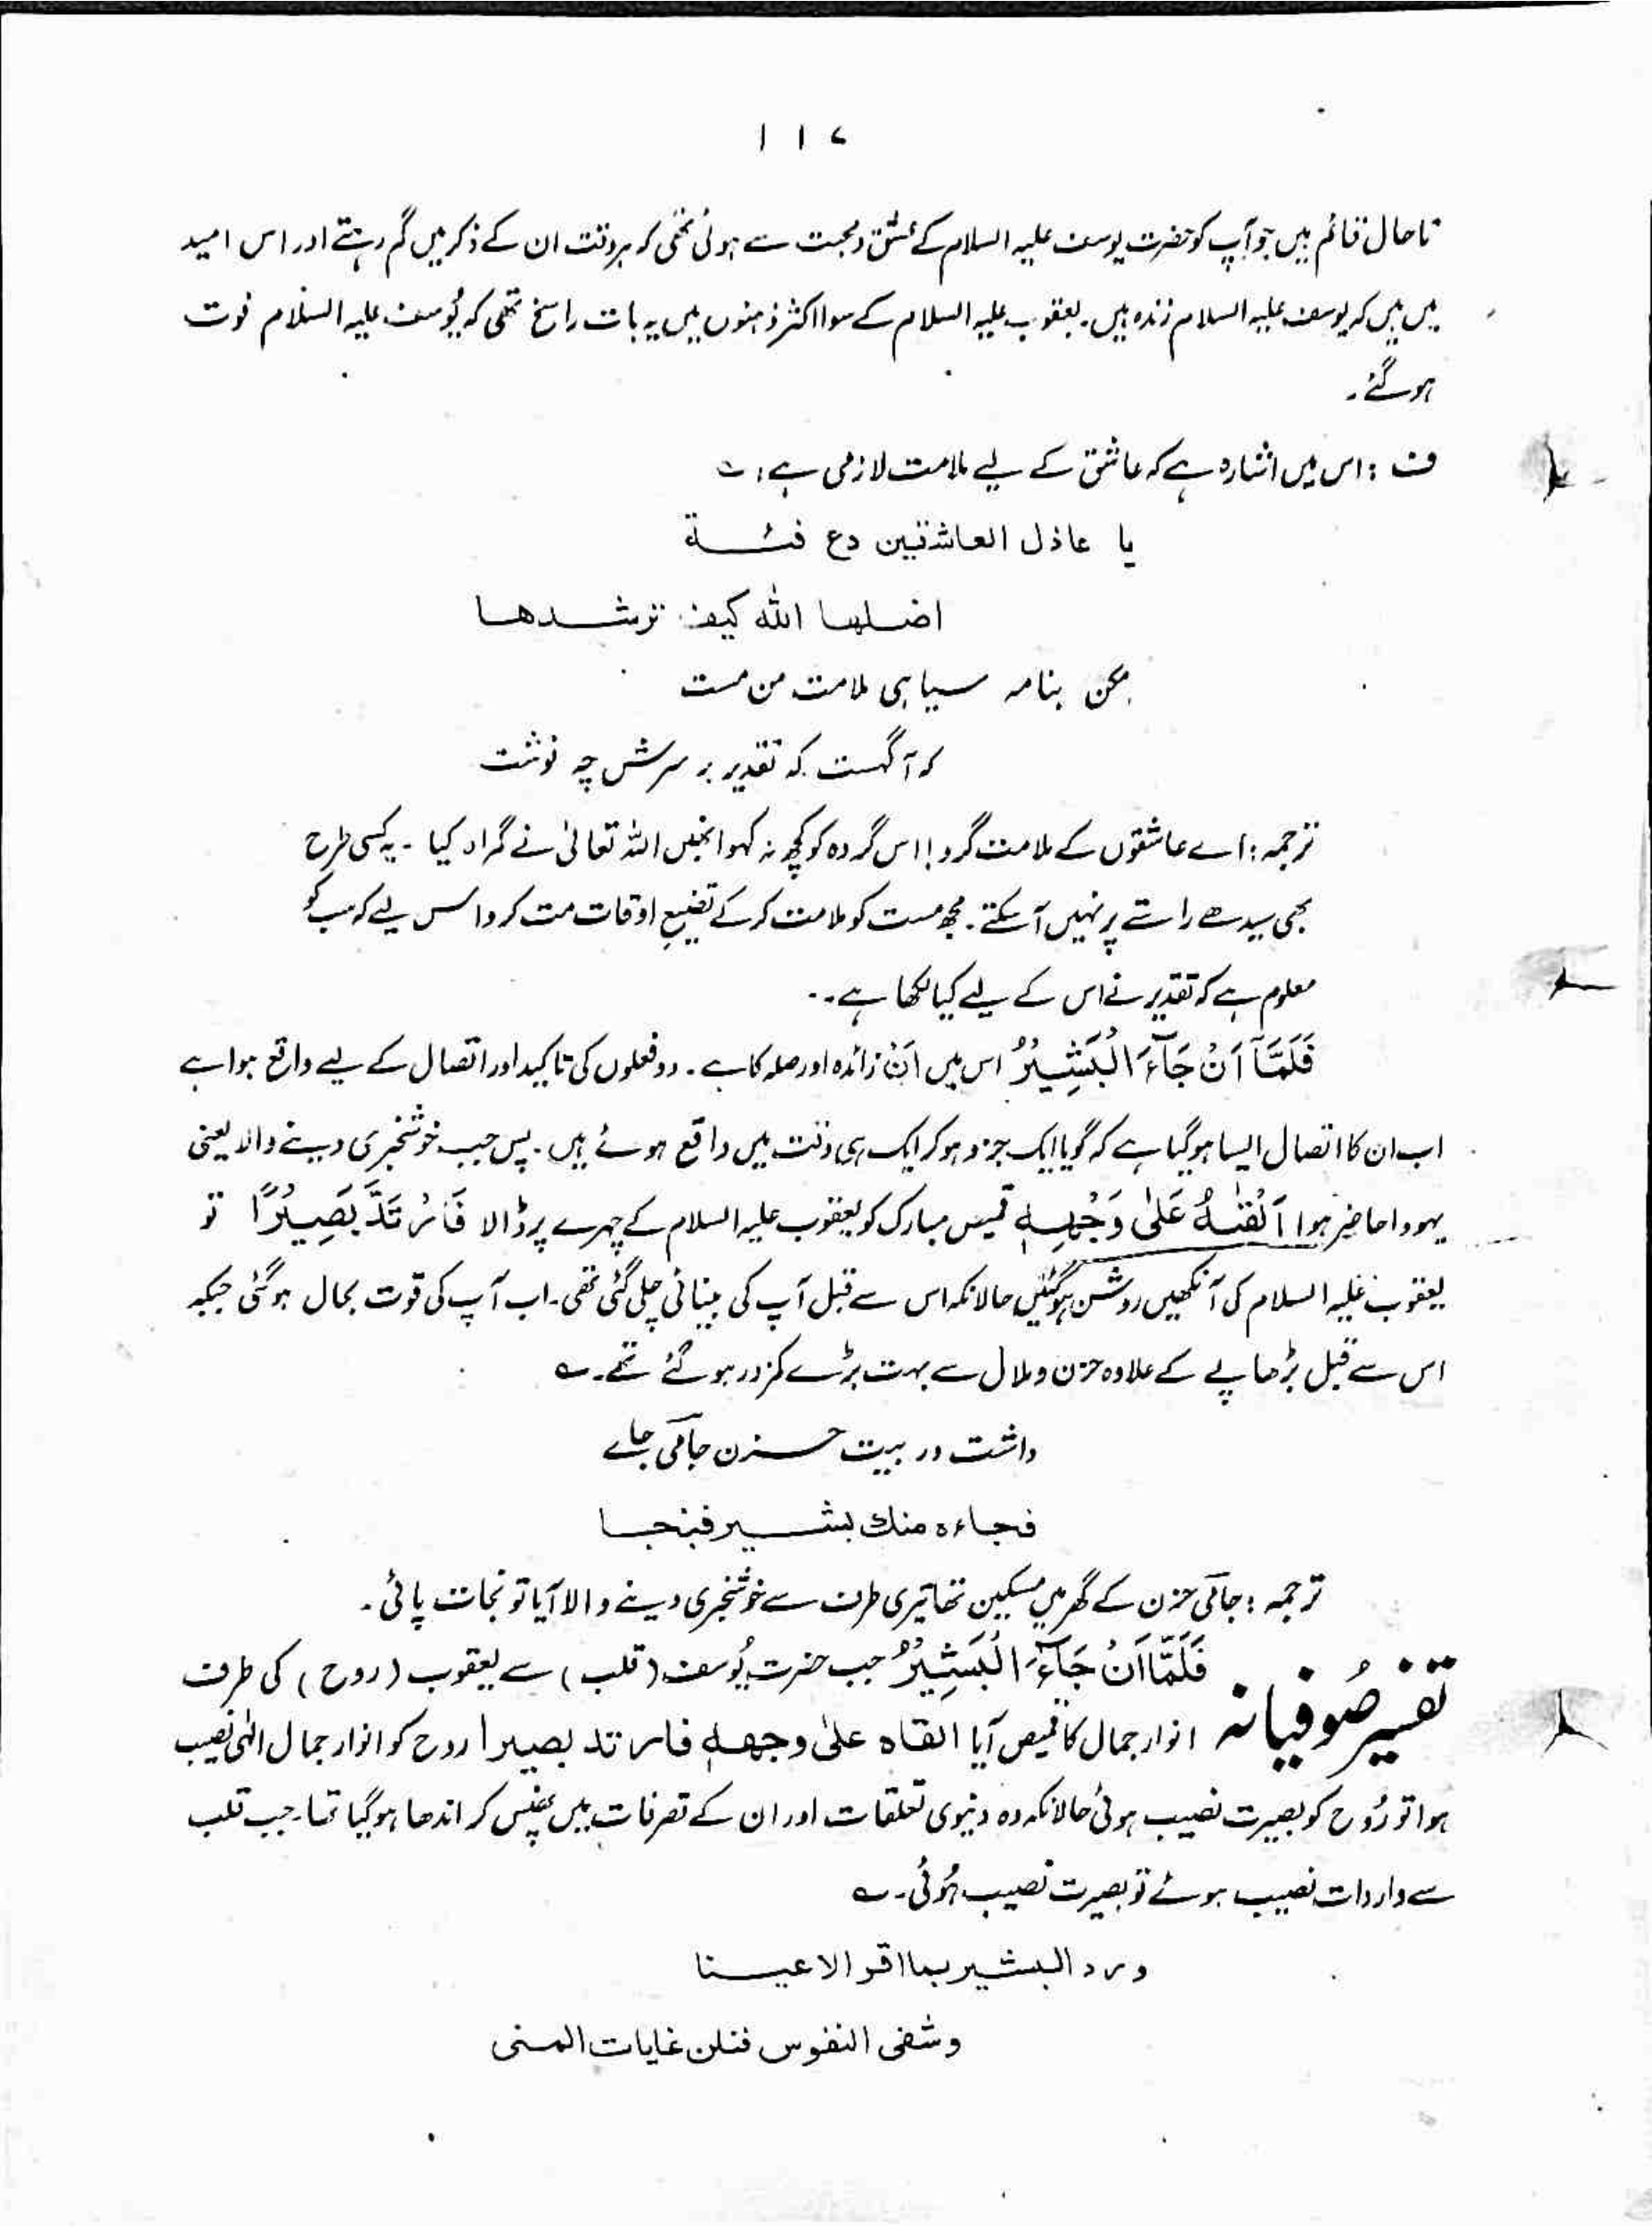 ۱۱۷
تاحال قائم ہیں جو آپ کو حضرت یوسف علیہ السلام کے عشق و محبت سے ہوئی تھی کہ ہر وقت ان کے ذکر میں گم رہتے اور اس امید
میں ہیں کہ یوسف علیہ السلام زندہ ہیں۔ یعقوب علیہ السلام کے سوا اکثر ذہنوں میں یہ بات راسخ تھی کہ یُوسف علیہ السلام فوت
ہو گئے۔
ف : اس میں اشارہ ہے کہ عاشق کے لیے ملامت لازمی ہے : ؎
یا عاذل العاشقین دع فئة
اضلها الله کیف ترشدها
مکن بنامہ سیاہی ملامت من مست
کہ آگہست کہ تقدیر بر سرش چہ نوشت
ترجمہ : اے عاشقوں کے ملامت گرو ! اس گروہ کو کچھ نہ کہو انھیں اللہ تعالیٰ نے گمراہ کیا ۔ یہ کسی طرح
بھی سیدھے راستے پر نہیں آ سکتے ۔ مجھ مست کو ملامت کر کے تضیع اوقات مت کرو اس لیے کہ سب کو
معلوم ہے کہ تقدیر نے اس کے لیے کیا لکھا ہے۔
فَلَمَّآ اَنْ جَآءَ الْبَشِیْرُ اس میں اَنْ زائدہ اور صلہ کا ہے ۔ دو فعلوں کی تاکید اور اتصال کے لیے واقع ہوا ہے
اب ان کا اتصال ایسا ہو گیا ہے کہ گویا ایک جزو ہو کر ایک ہی وقت میں واقع ہوئے ہیں ۔ پس جب خوشخبری دینے والا یعنی
یہودا حاضر ہوا اَلْقٰىهُ عَلٰى وَجْهِهٖ قمیص مبارک کو یعقوب علیہ السلام کے چہرے پر ڈالا فَارْتَدَّ بَصِیْرًا تو
یعقوب علیہ السلام کی آنکھیں روشن ہو گئیں حالانکہ اس سے قبل آپ کی بینائی چلی گئی تھی۔ اب آپ کی قوت بحال ہو گئی جبکہ
اس سے قبل بڑھاپے کے علاوہ حزن و ملال سے بہت بڑے کمزور ہو گئے تھے۔ ؎
داشت در بیت حزن جامی جاے
فجاءه منك بشیر فنجا
ترجمہ : جامی حزن کے گھر میں مسکین تھا تیری طرف سے خوشخبری دینے والا آیا تو نجات پائی ۔
تفسیر صُوفیانہ فَلَمَّا اَنْ جَآءَ الْبَشِیْرُ جب حضرت یُوسف (قلب) سے یعقوب (روح) کی طرف
انوار جمال کا قمیص آیا القاه علیٰ وجهه فارتد بصیرا روح کو انوار جمال الٰہی نصیب
ہوا تو رُوح کو بصیرت نصیب ہوئی حالانکہ وہ دنیوی تعلقات اور ان کے تصرفات میں پھنس کر اندھا ہو گیا تھا۔ جب قلب
سے واردات نصیب ہوئے تو بصیرت نصیب ہُوئی۔ ؎
ورد البشیر بما اقر الاعینا
وشفی النفوس فنلن غایات المنی